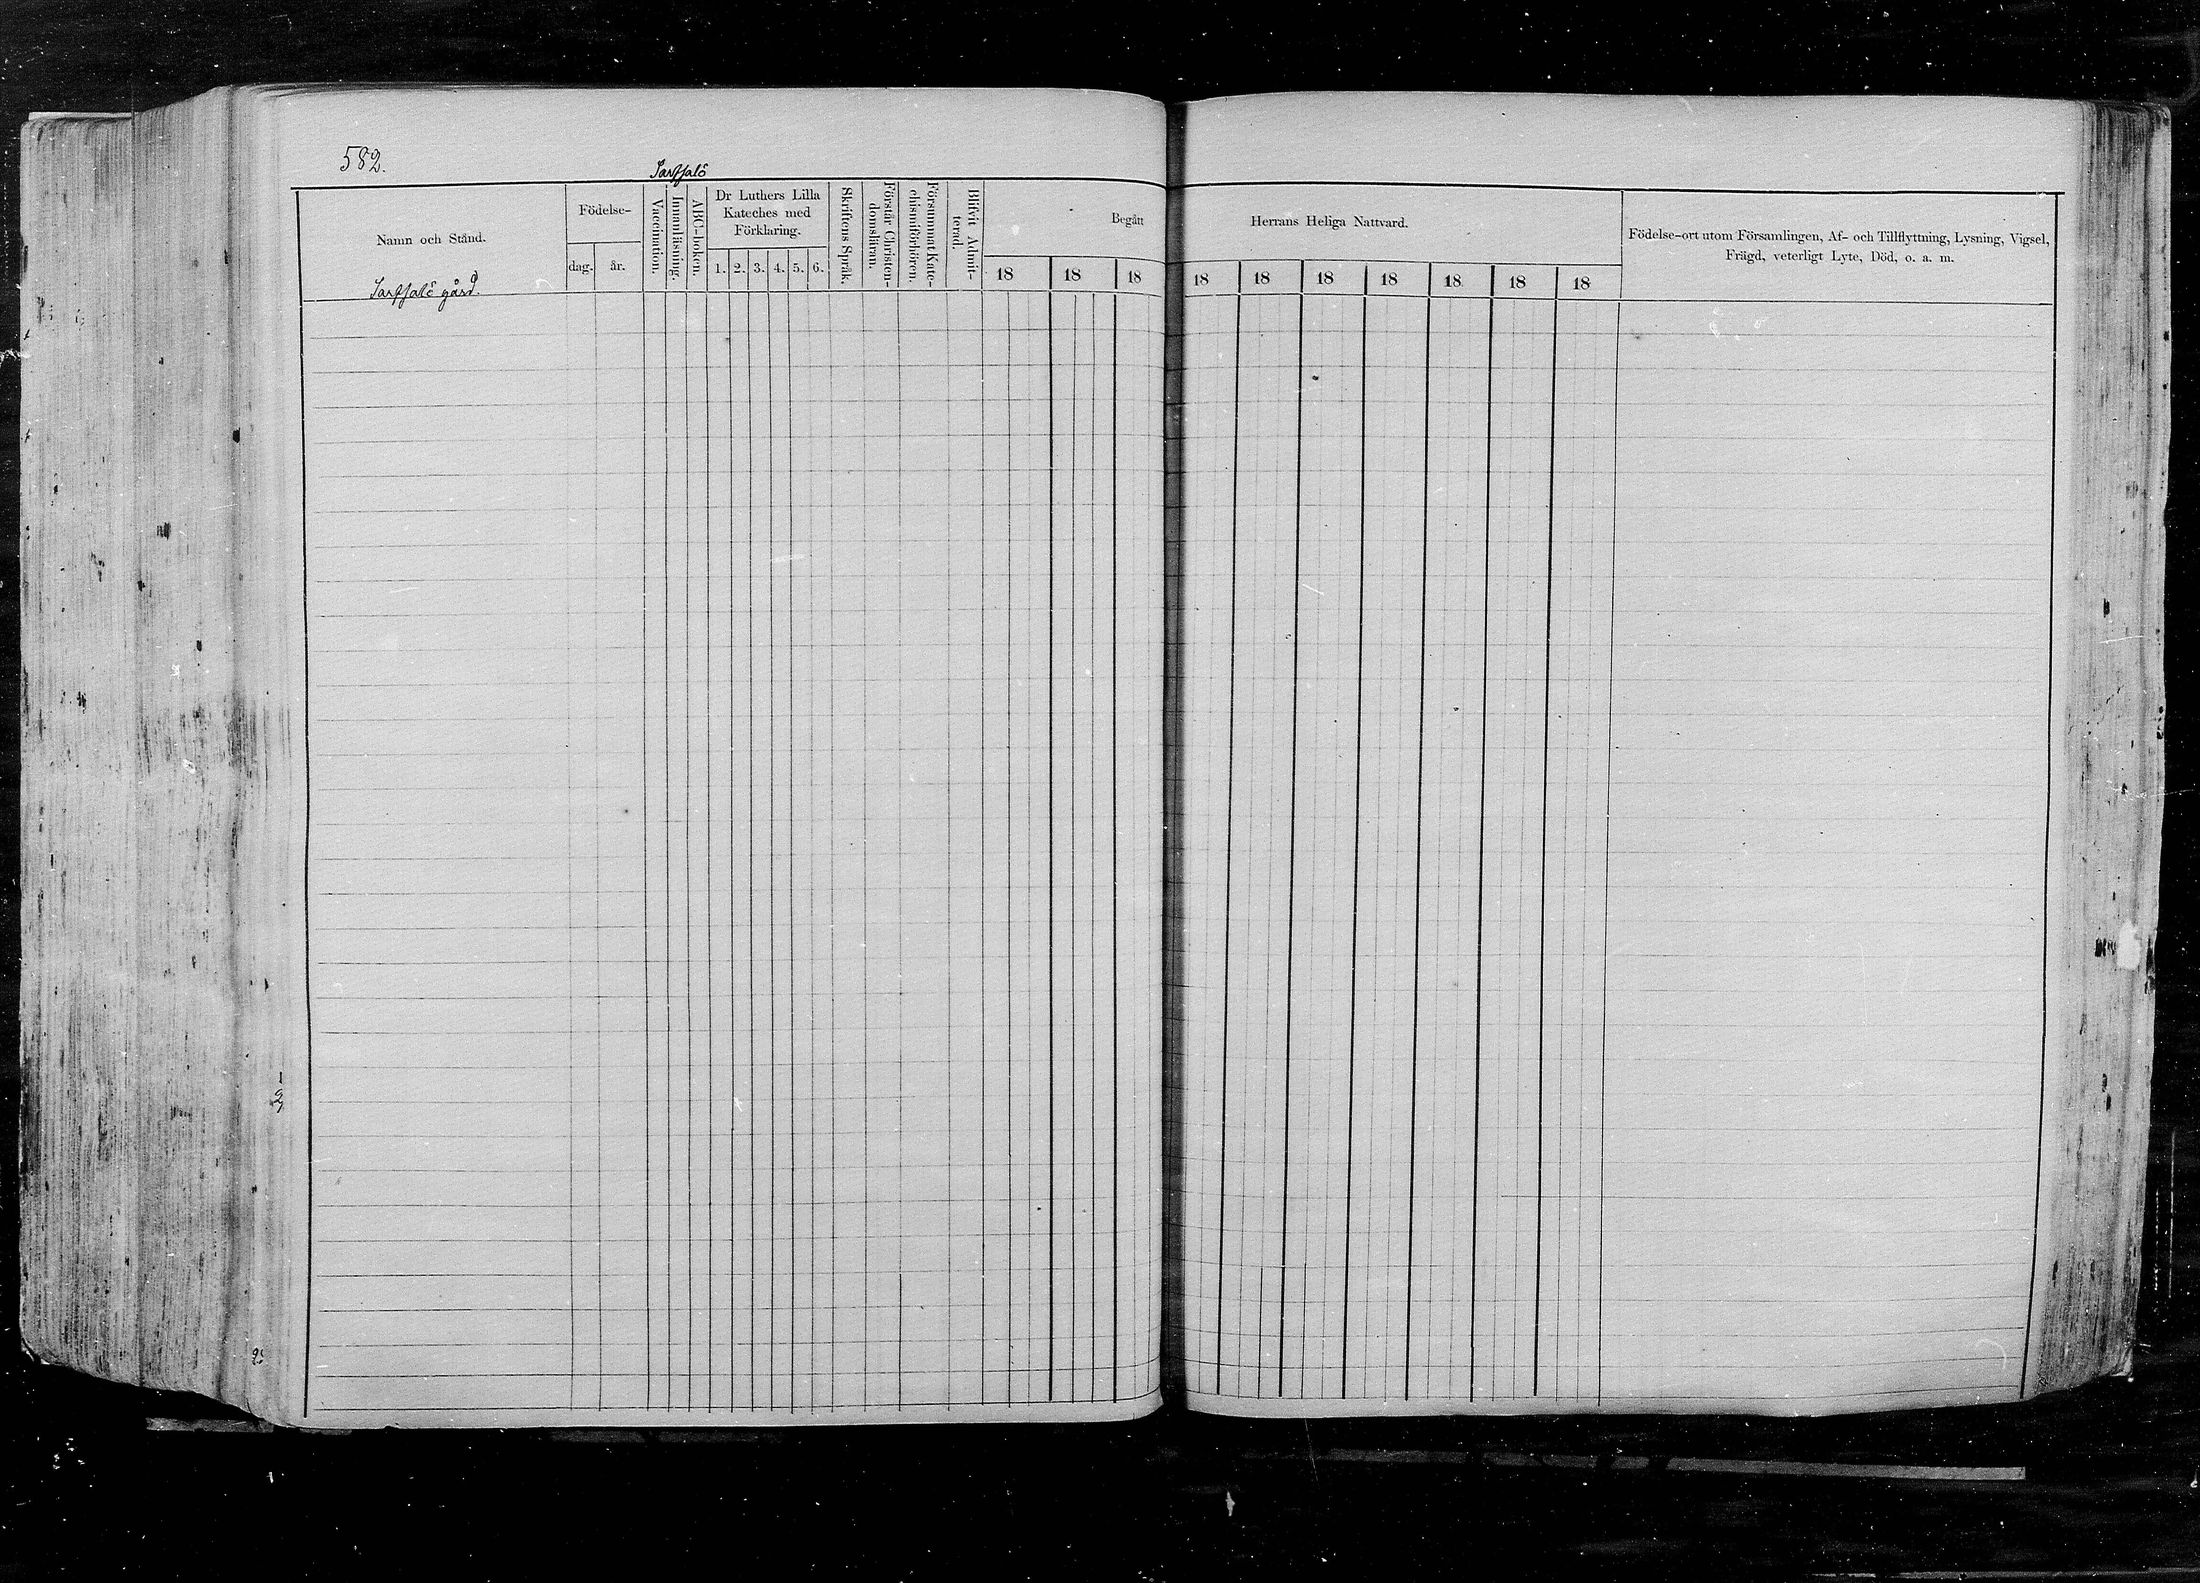 582.
Sarfsalö
Namn och Stånd.
Födelse-
dag.
år.
Vaccination.
Innanläsning.
ABC-boken.
Dr Luthers Lilla
Kateches med
Förklaring.
1. 2. 3. 4. 5. 6.
Skriftens Språk.
Förstår Christen-
domsläran.
Försummat Kate-
chismiförhören.
Blifvit Admit-
terad.
Begått Herrans Heliga Nattvard.
18 18 18 18 18 18 18 18 18 18
Födelse-ort utom Församlingen, Af- och Tillflyttning, Lysning, Vigsel,
Frägd, veterligt Lyte, Död, o. a. m.
Sarfsalö gård.